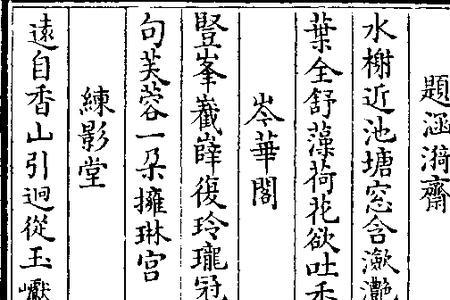 題涵漪齋
水榭近池塘窓含瀲灧
葉全舒藻荷花欲吐
岑華閣
豎峯巀嶭復玲瓏冠
句芙蓉一朶擁琳宫
練影堂
遠自香山引迴從玉